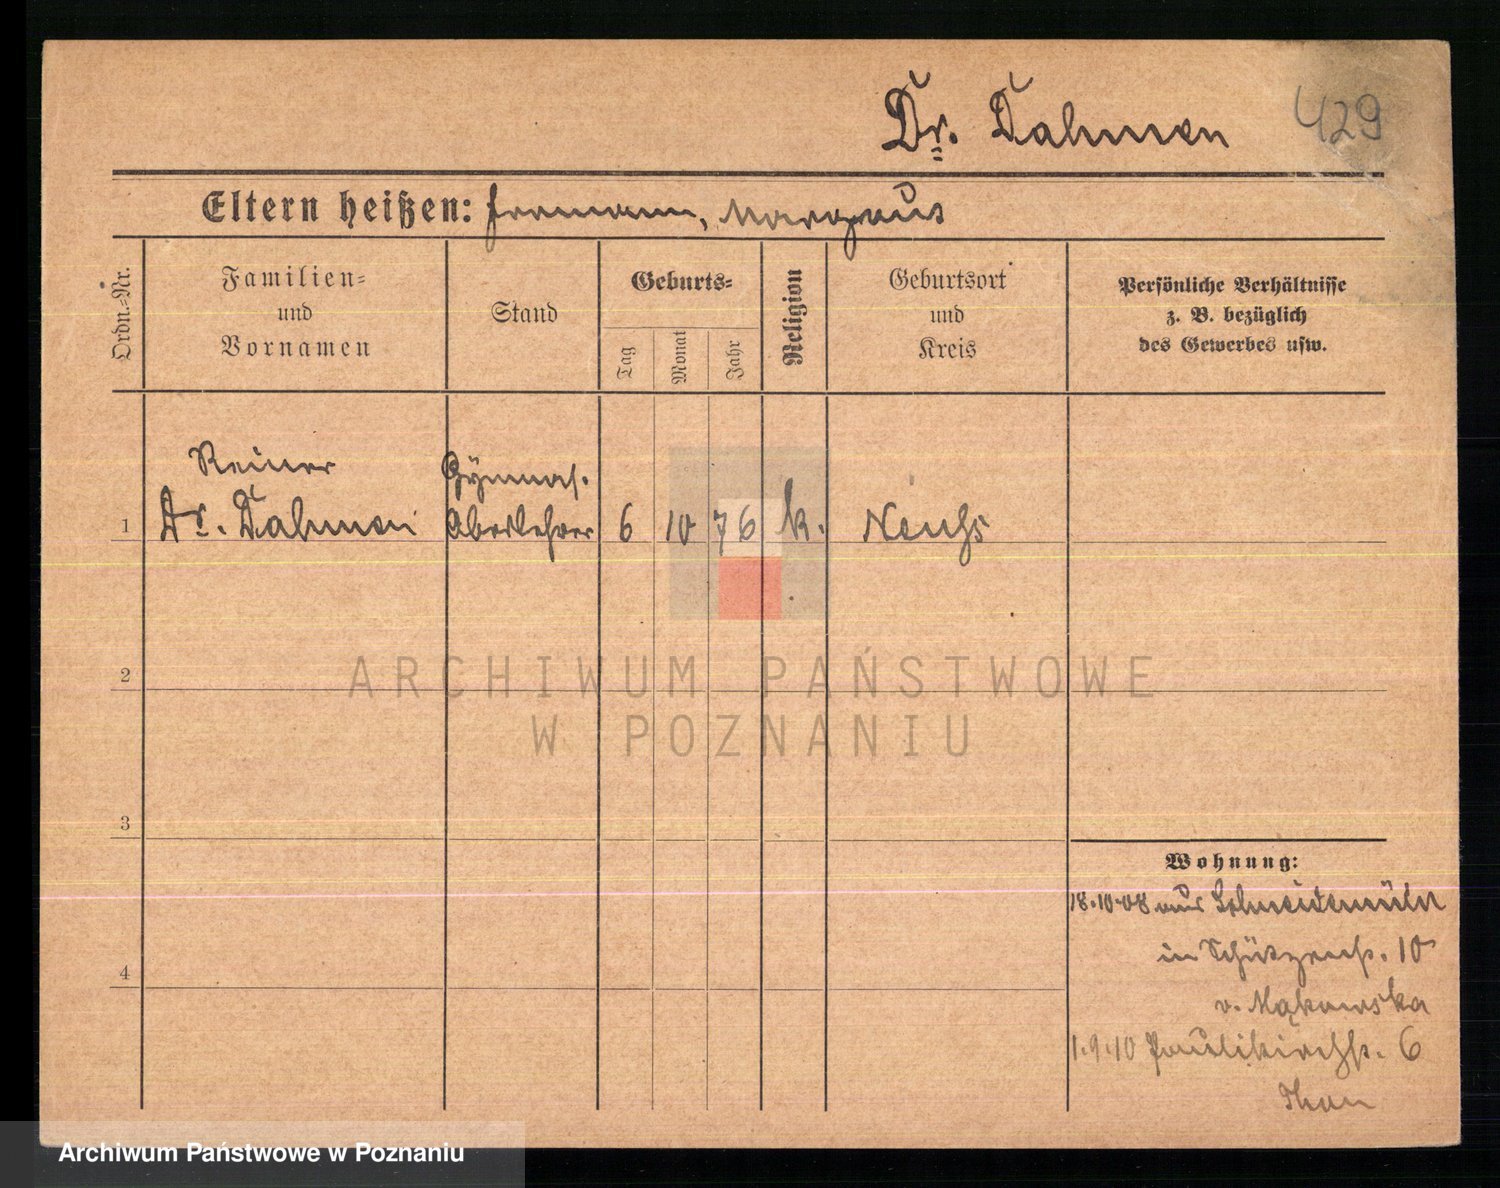 Dr. Dahmen
429
Eltern heißen: Hermann, Margreus
Ordn.-Nr.
Familien-
und
Vornamen
Stand
Geburts-
Tag
Monat
Jahr
Religion
Geburtsort
und
Kreis
Persönliche Verhältnisse
z. B. bezüglich
des Gewerbes usw.
Reiner
Gymnas.
1 Dr. Dahmen Oberlehrer 6 10 76 k. Neuss
2
3
4
Wohnung:
18.10.08 aus Schneidemühl
in Schützenstr. 10
v. Mąkowska
1.9.10 Paulikirchstr. 6
ARCHIWUM PAŃSTWOWE
W POZNANIU
Archiwum Państwowe w Poznaniu